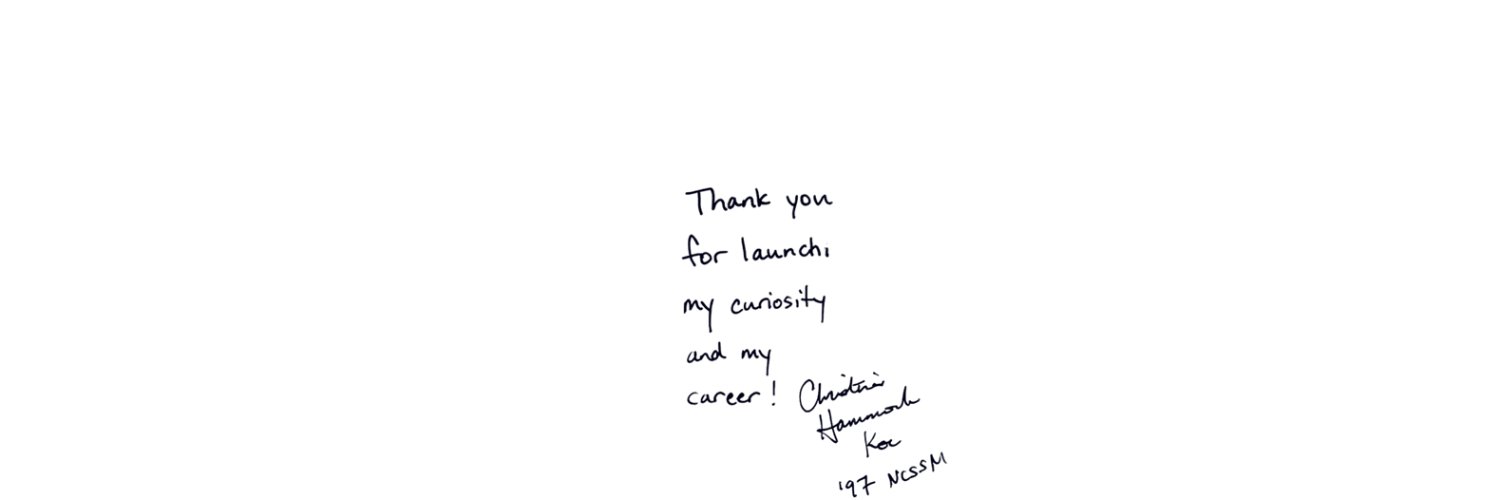 Thank you
for launchi
my curiosity
and my
career!
Christina
Hammock
Koch
'97 NCSSM